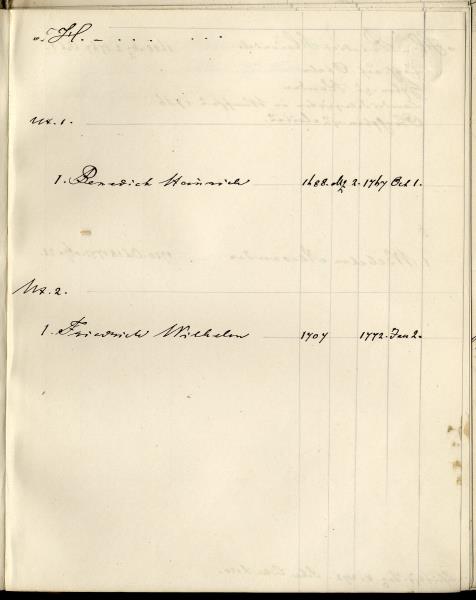 v. H. – . . . . . .
Nr. 1.
1. Benedich Heinrich 1688. Mz 2. 1767 Oct 1.
Nr. 2.
1. Friedrich Wilhelm 1707 1772. Jan 2.